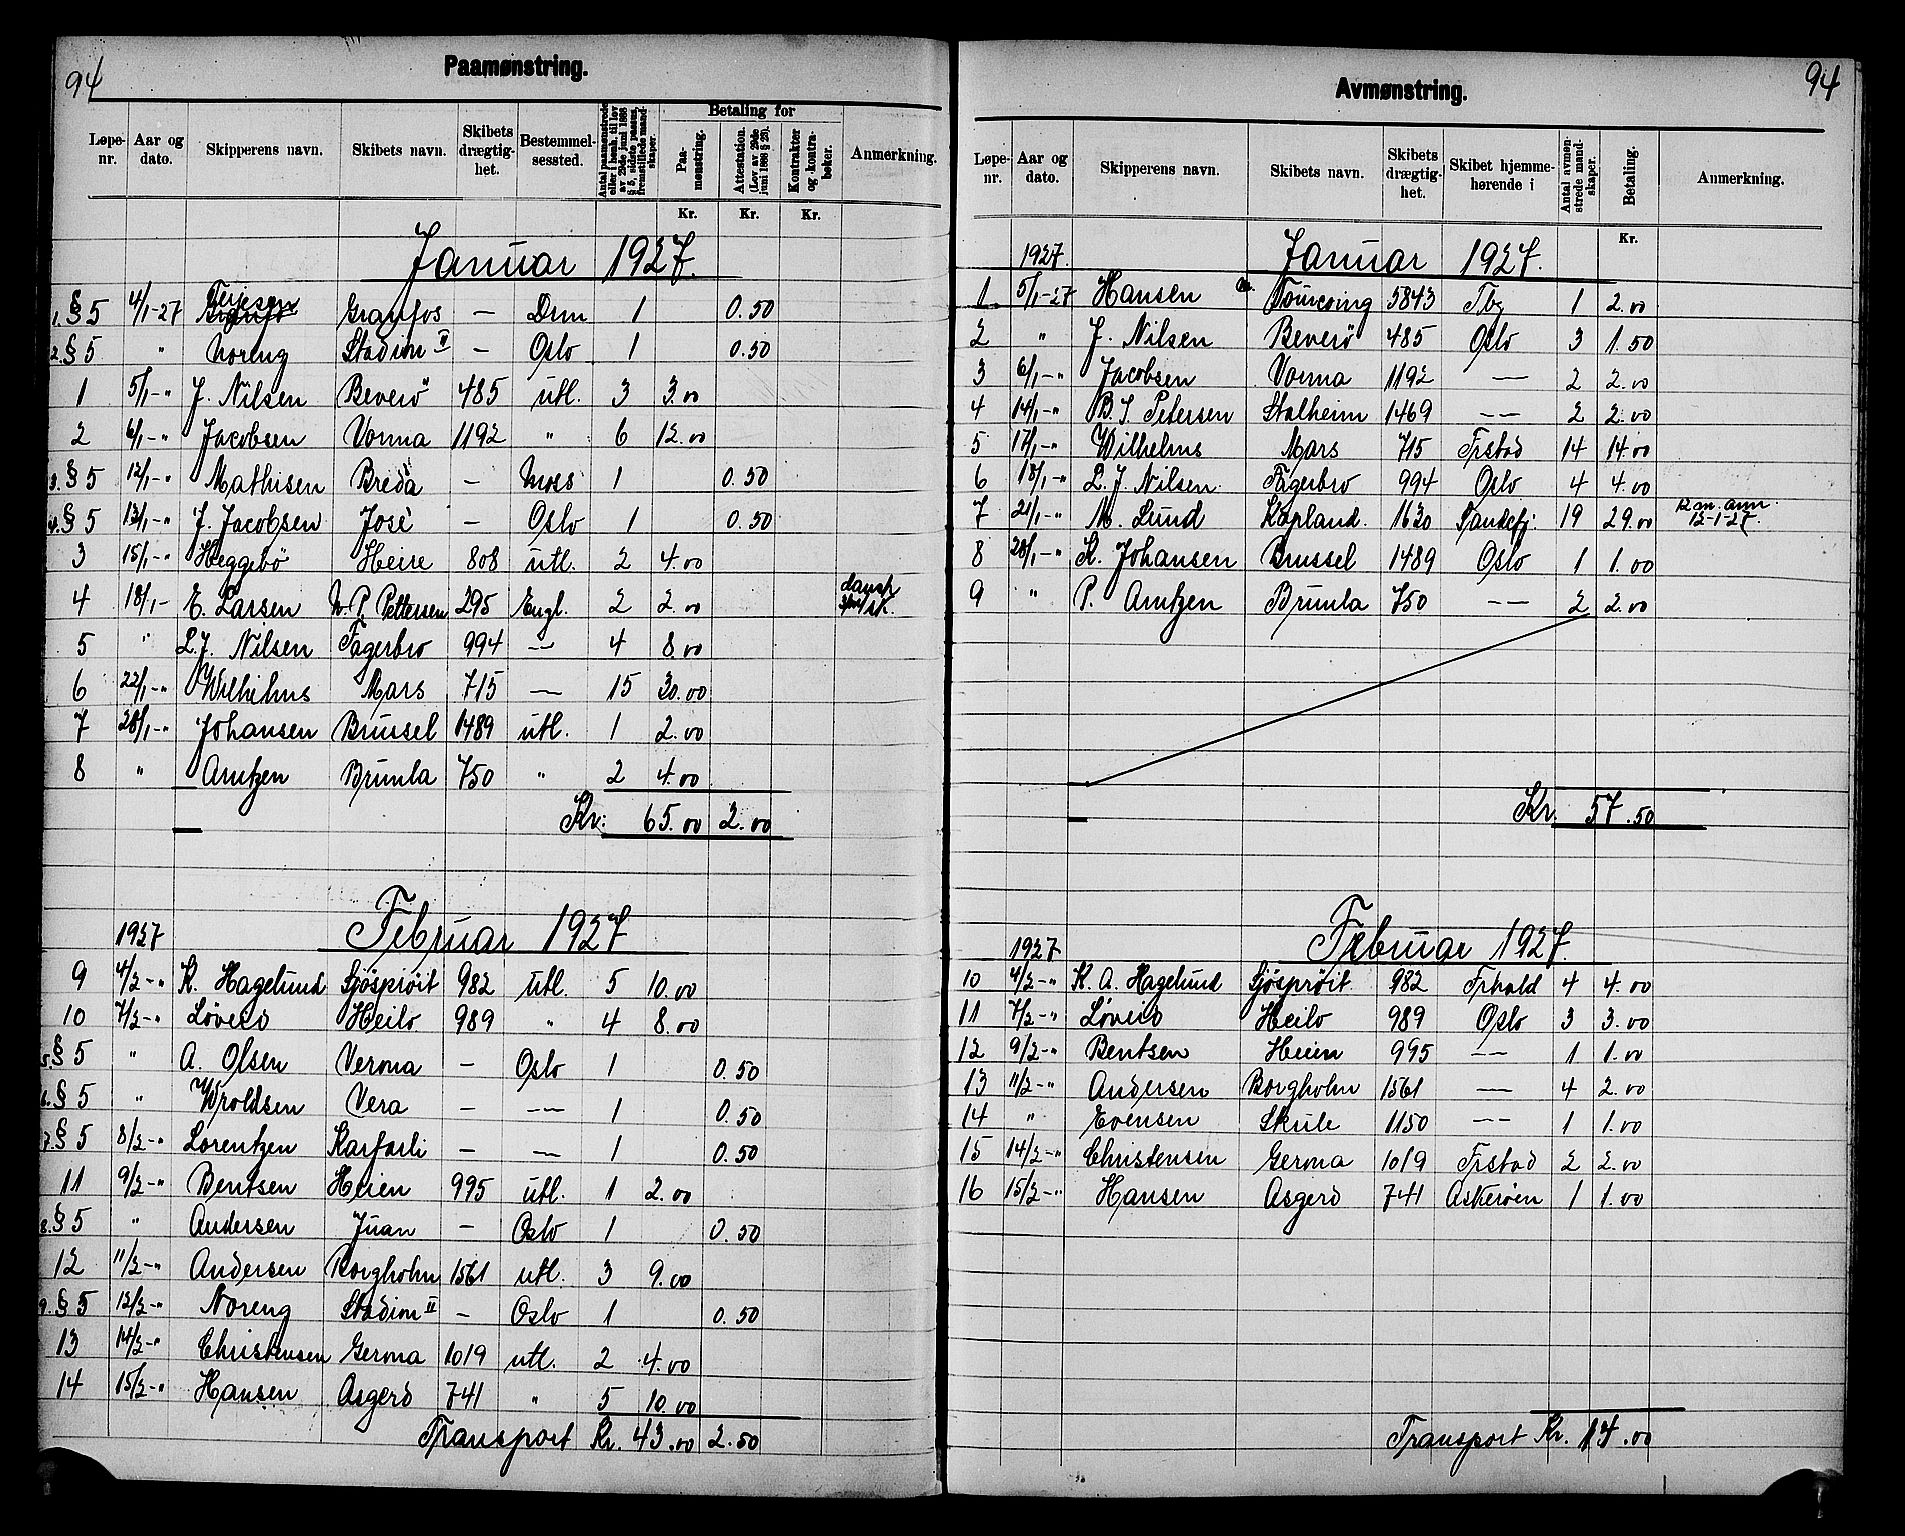 94
Paamønstring.
Løpe-nr. Aar og dato. Skipperens navn. Skibets navn. Skibets drægtig-het. Bestemmel-sessted. Antal paamønstrede eller i henh. til lov av 29de juni 1888 § 5, sidste passus, fremstillede mand-skaper. Betaling for Paa-mønstring. Attestation. (Lov av 29de juni 1888 § 28). Kontrakter og -kontra-bøker. Anmerkning.
Kr. Kr. Kr.
Januar 1927.
1. § 5 4/1-27 Terjesen Granfos — Drm 1 0.50
2. § 5 " Noreng Stadion II — Oslo 1 0.50
1 5/1-" J. Nilsen Beverö 485 utl. 3 3.00
2 6/1-" Jacobsen Vorma 1192 " 6 12.00
3. § 5 12/1-" Mathisen Breda — Moss 1 0.50
4. § 5 13/1-" J. Jacobsen José — Oslo 1 0.50
3 15/1-" Heggebö Heire 808 utl. 2 4.00
4 18/1- E. Larsen N. P. Pettersen 295 Engl. 2 2.00 dansk
5 " L. J. Nilsen Fagerbro 994 — 4 8.00
6 22/1-" Wilhelms Mars 715 — 15 30.00
7 28/1-" Johansen Brussel 1489 utl. 1 2.00
8 " Arntzen Brumla 750 " 2 4.00
Kr. 65.00 2.00
1927 Februar 1927
9 4/2-" K. Hagelund Sjöspröit 982 utl. 5 10.00
10 7/2-" Löverö Heilo 989 " 4 8.00
5. § 5 " A. Olsen Verona — Oslo 1 0.50
6. § 5 " Wroldsen Vera — — 1 0.50
7. § 5 8/2-" Lorentzen Karfarli — — 1 0.50
11 9/2-" Bentsen Heien 995 utl. 1 2.00
8. § 5 " Andersen Juan — Oslo 1 0.50
12 11/2-" Andersen Borgholm 1561 utl. 3 9.00
9. § 5 12/2-" Noreng Stadion II — Oslo 1 0.50
13 14/2-" Christensen Gerona 1019 utl. 2 4.00
14 15/2-" Hansen Asgerd 741 " 5 10.00
Transport Kr. 43.00 2.50
94
Avmønstring.
Løpe-nr. Aar og dato. Skipperens navn. Skibets navn. Skibets drægtig-het. Skibet hjemme-hørende i Antal avmøn-strede mand-skaper. Betaling. Anmerkning.
Kr.
1927. Januar 1927.
1 5/1-27 Hansen Tourcoing 5843 Tbg 1 2.00
2 " J. Nilsen Beverö 485 Oslo 3 1.50
3 6/1-" Jacobsen Vorma 1192 — 2 2.00
4 14/1-" B. S. Petersen Stalheim 1469 — 2 2.00
5 17/1-" Wilhelms Mars 715 Frstad 14 14.00
6 18/1-" L. J. Nilsen Fagerbro 994 Oslo 4 4.00
7 21/1-" M. Lund Kapland. 1630 Sandefj. 19 29.00 12-1-27.
8 28/1-" K. Johansen Brussel 1489 Oslo 1 1.00
9 " P. Arntzen Brumla 750 — 2 2.00
Kr. 57.50
1927 Februar 1927.
10 4/2-" K. A. Hagelund Sjöspröit 982 Frhald 4 4.00
11 7/2-" Löverö Heilo 989 Oslo 3 3.00
12 9/2-" Bentsen Heien 995 — 1 1.00
13 11/2-" Andersen Borgholm 1561 — 4 2.00
14 " Evensen Skule 1150 — 1 1.00
15 14/2-" Christensen Gerona 1019 Frstad 2 2.00
16 15/2-" Hansen Asgerd 741 Askeröen 1 1.00
Transport Kr. 14.00